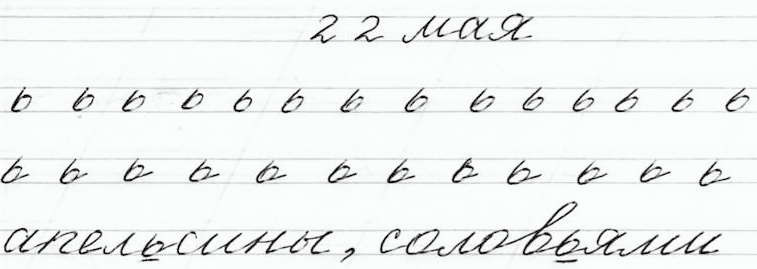 22 мая
ь ь ь ь ь ь ь ь ь ь ь ь ь ь
ь ь ь ь ь ь ь ь ь ь ь ь
апельсины, соловьями